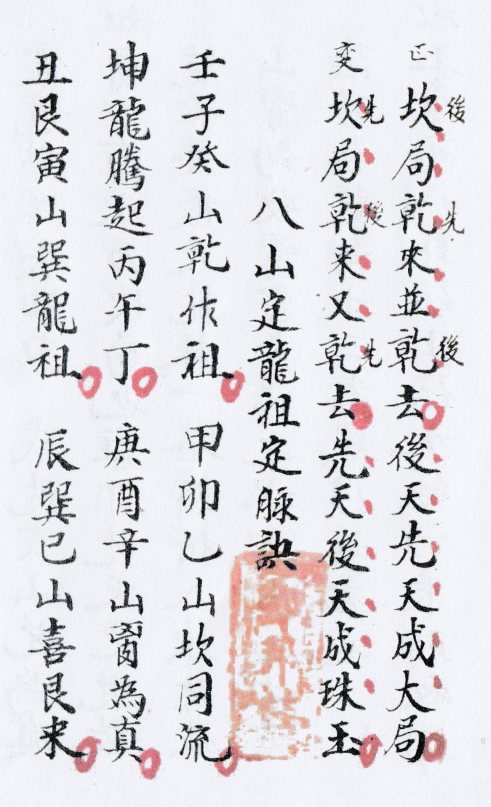 正 坎局乾來並乾去後天先天成大局
後 先 後
变 坎局乾来又乾去先天後天成珠玉
先 後 先
八山定龍祖定脉訣
壬子癸山乾作祖 甲卯乙山坎同流
坤龍騰起丙午丁 庚酉辛山离為真
丑艮寅山巽龍祖 辰巽巳山喜艮来